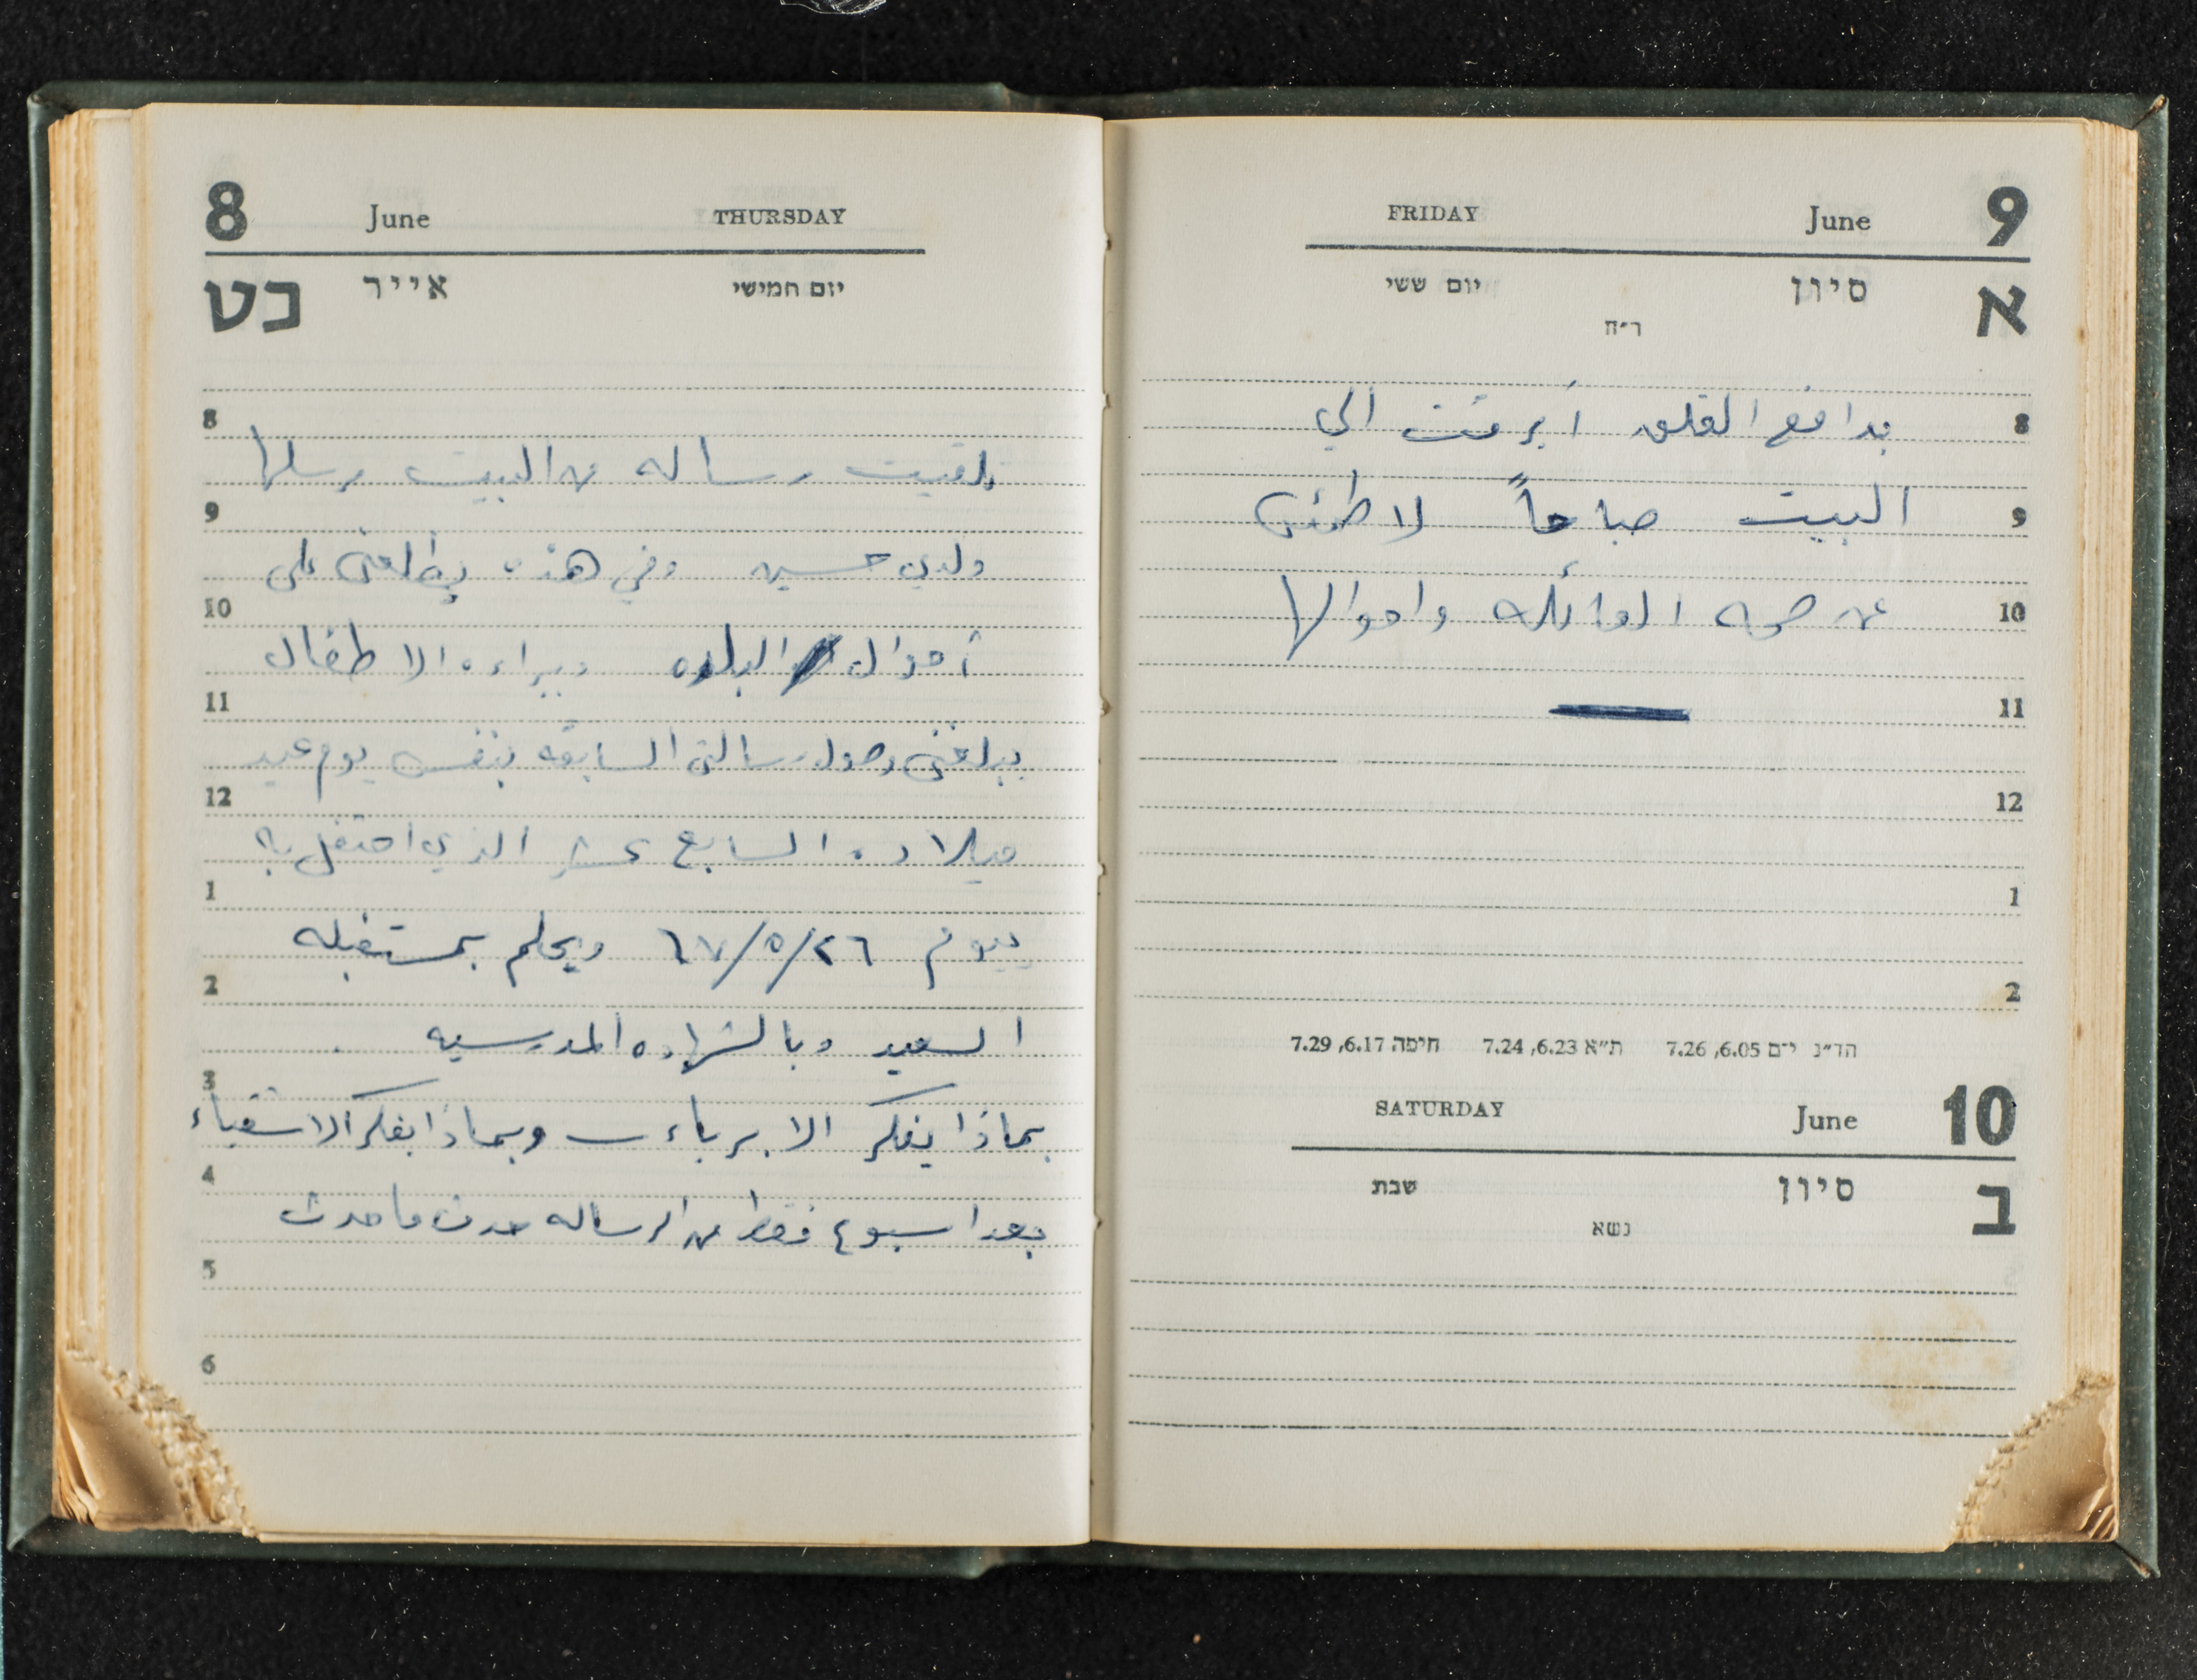 8 June THURSDAY
כט אייר יום חמישי
8
تلقيت رساله من البيت مرسلها
9
ولدي حسين وفي هذه يطلعني على
10
أحوال البلده وببراءه الاطفال
11
يبلغني وصول رسالتي السابقه بنفس يوم عيد
12
ميلاده السابع عشر الذي احتفل به
1
بيوم ٢٦/٥/٦٧ ويحلم بمستقبله
2
السعيد وبالشهاده المدرسيه .
3
بماذا يفكر الابرياء وبماذا يفكر الاشقياء
4
بعد اسبوع فقط من الرساله حدث ما حدث
5
6
FRIDAY June 9
יום ששי סיון א
ר״ח
8
بدافع القلق أبرقت الي
9
البيت صباحاً لاطمئن
10
عن صحه العائله واحوالها
11
12
1
2
הד״נ י־ם 6.05, 7.26 ת״א 6.23, 7.24 חיפה 6.17, 7.29
SATURDAY June 10
שבת סיון ב
נשא